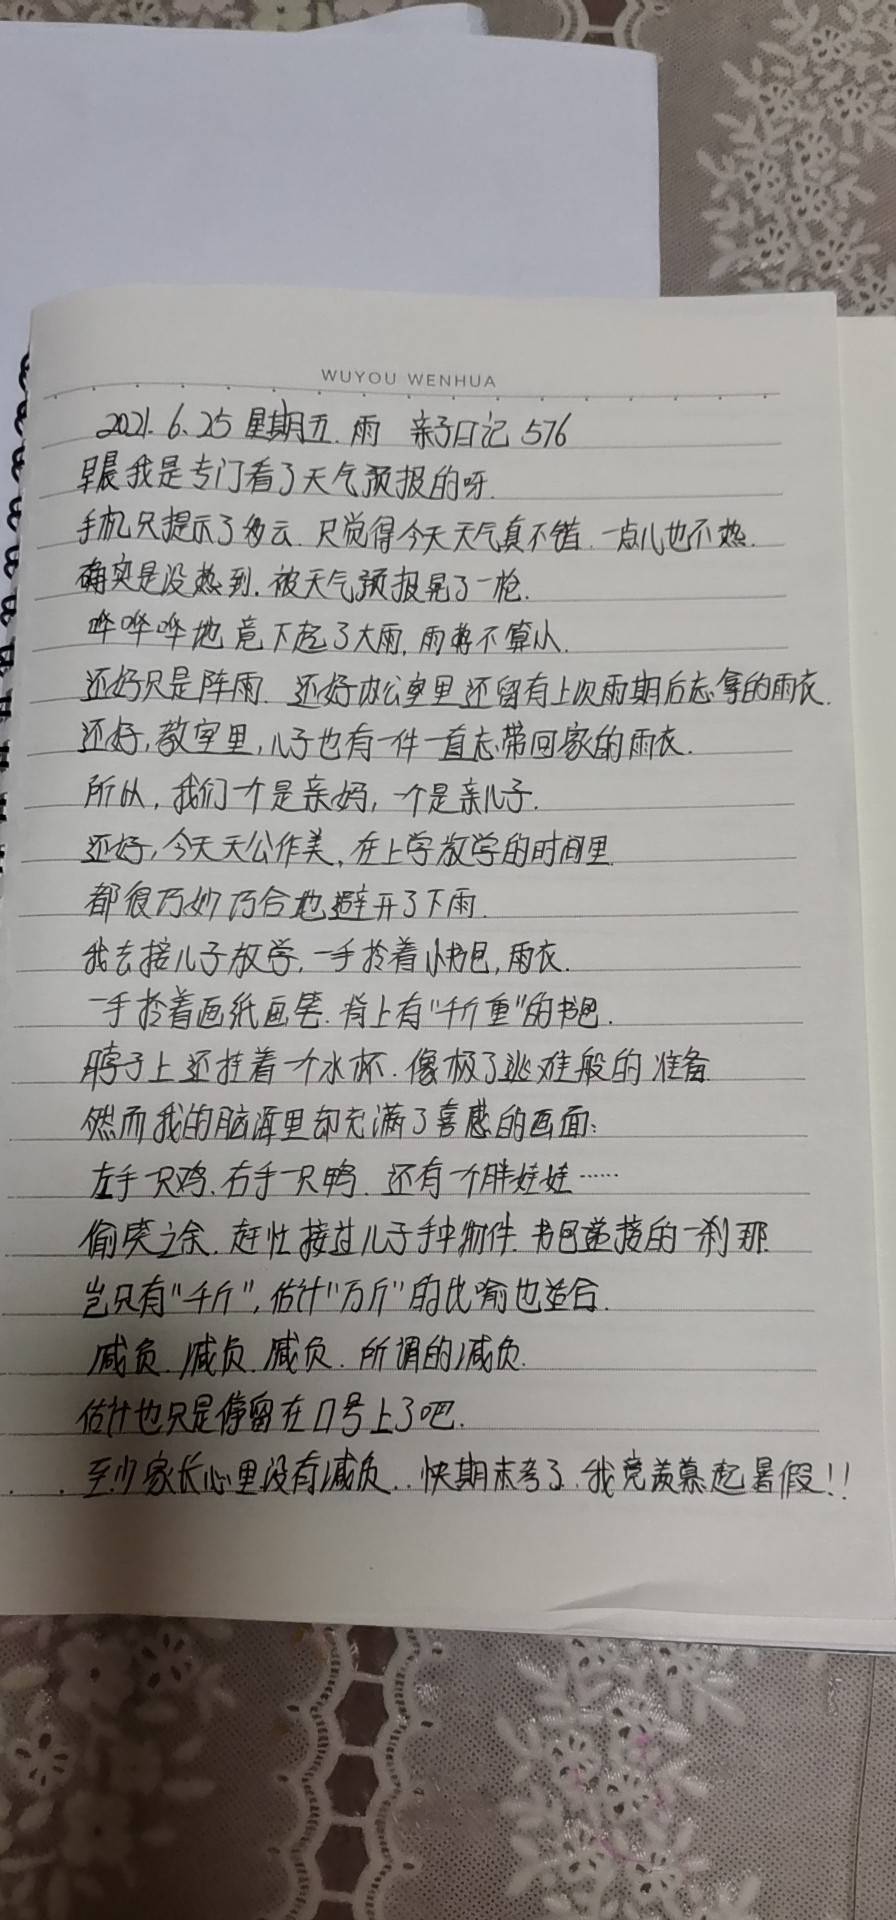 WUYOU WENHUA
2021.6.25 星期五.雨 亲子日记576
早晨我是专门看了天气预报的呀.
手机只提示了多云.只觉得今天天气真不错.一点儿也不热.
确实是没热到.被天气预报晃了一枪.
哗哗哗地竟下起了大雨,雨势不算小.
还好只是阵雨.还好办公室里还留有上次雨期后忘拿的雨衣.
还好,教室里,儿子也有一件一直忘带回家的雨衣.
所以,我们一个是亲妈,一个是亲儿子.
还好,今天天公作美,在上学放学的时间里
都很巧妙巧合地避开了下雨.
我去接儿子放学,一手拎着小书包,雨衣.
一手拎着画纸画笔.背上有"千斤重"的书包.
脖子上还挂着一个水杯.像极了逃难般的准备
然而我的脑海里却充满了喜感的画面:
左手一只鸡.右手一只鸭.还有一个胖娃娃……
偷笑之余.赶忙接过儿子手中物件.书包递接的一刹那
岂只有"千斤",估计"万斤"的比喻也适合.
减负.减负.减负.所谓的减负.
估计也只是停留在口号上了吧.
至少家长心里没有减负..快期末考了.我竟羡慕起暑假!!